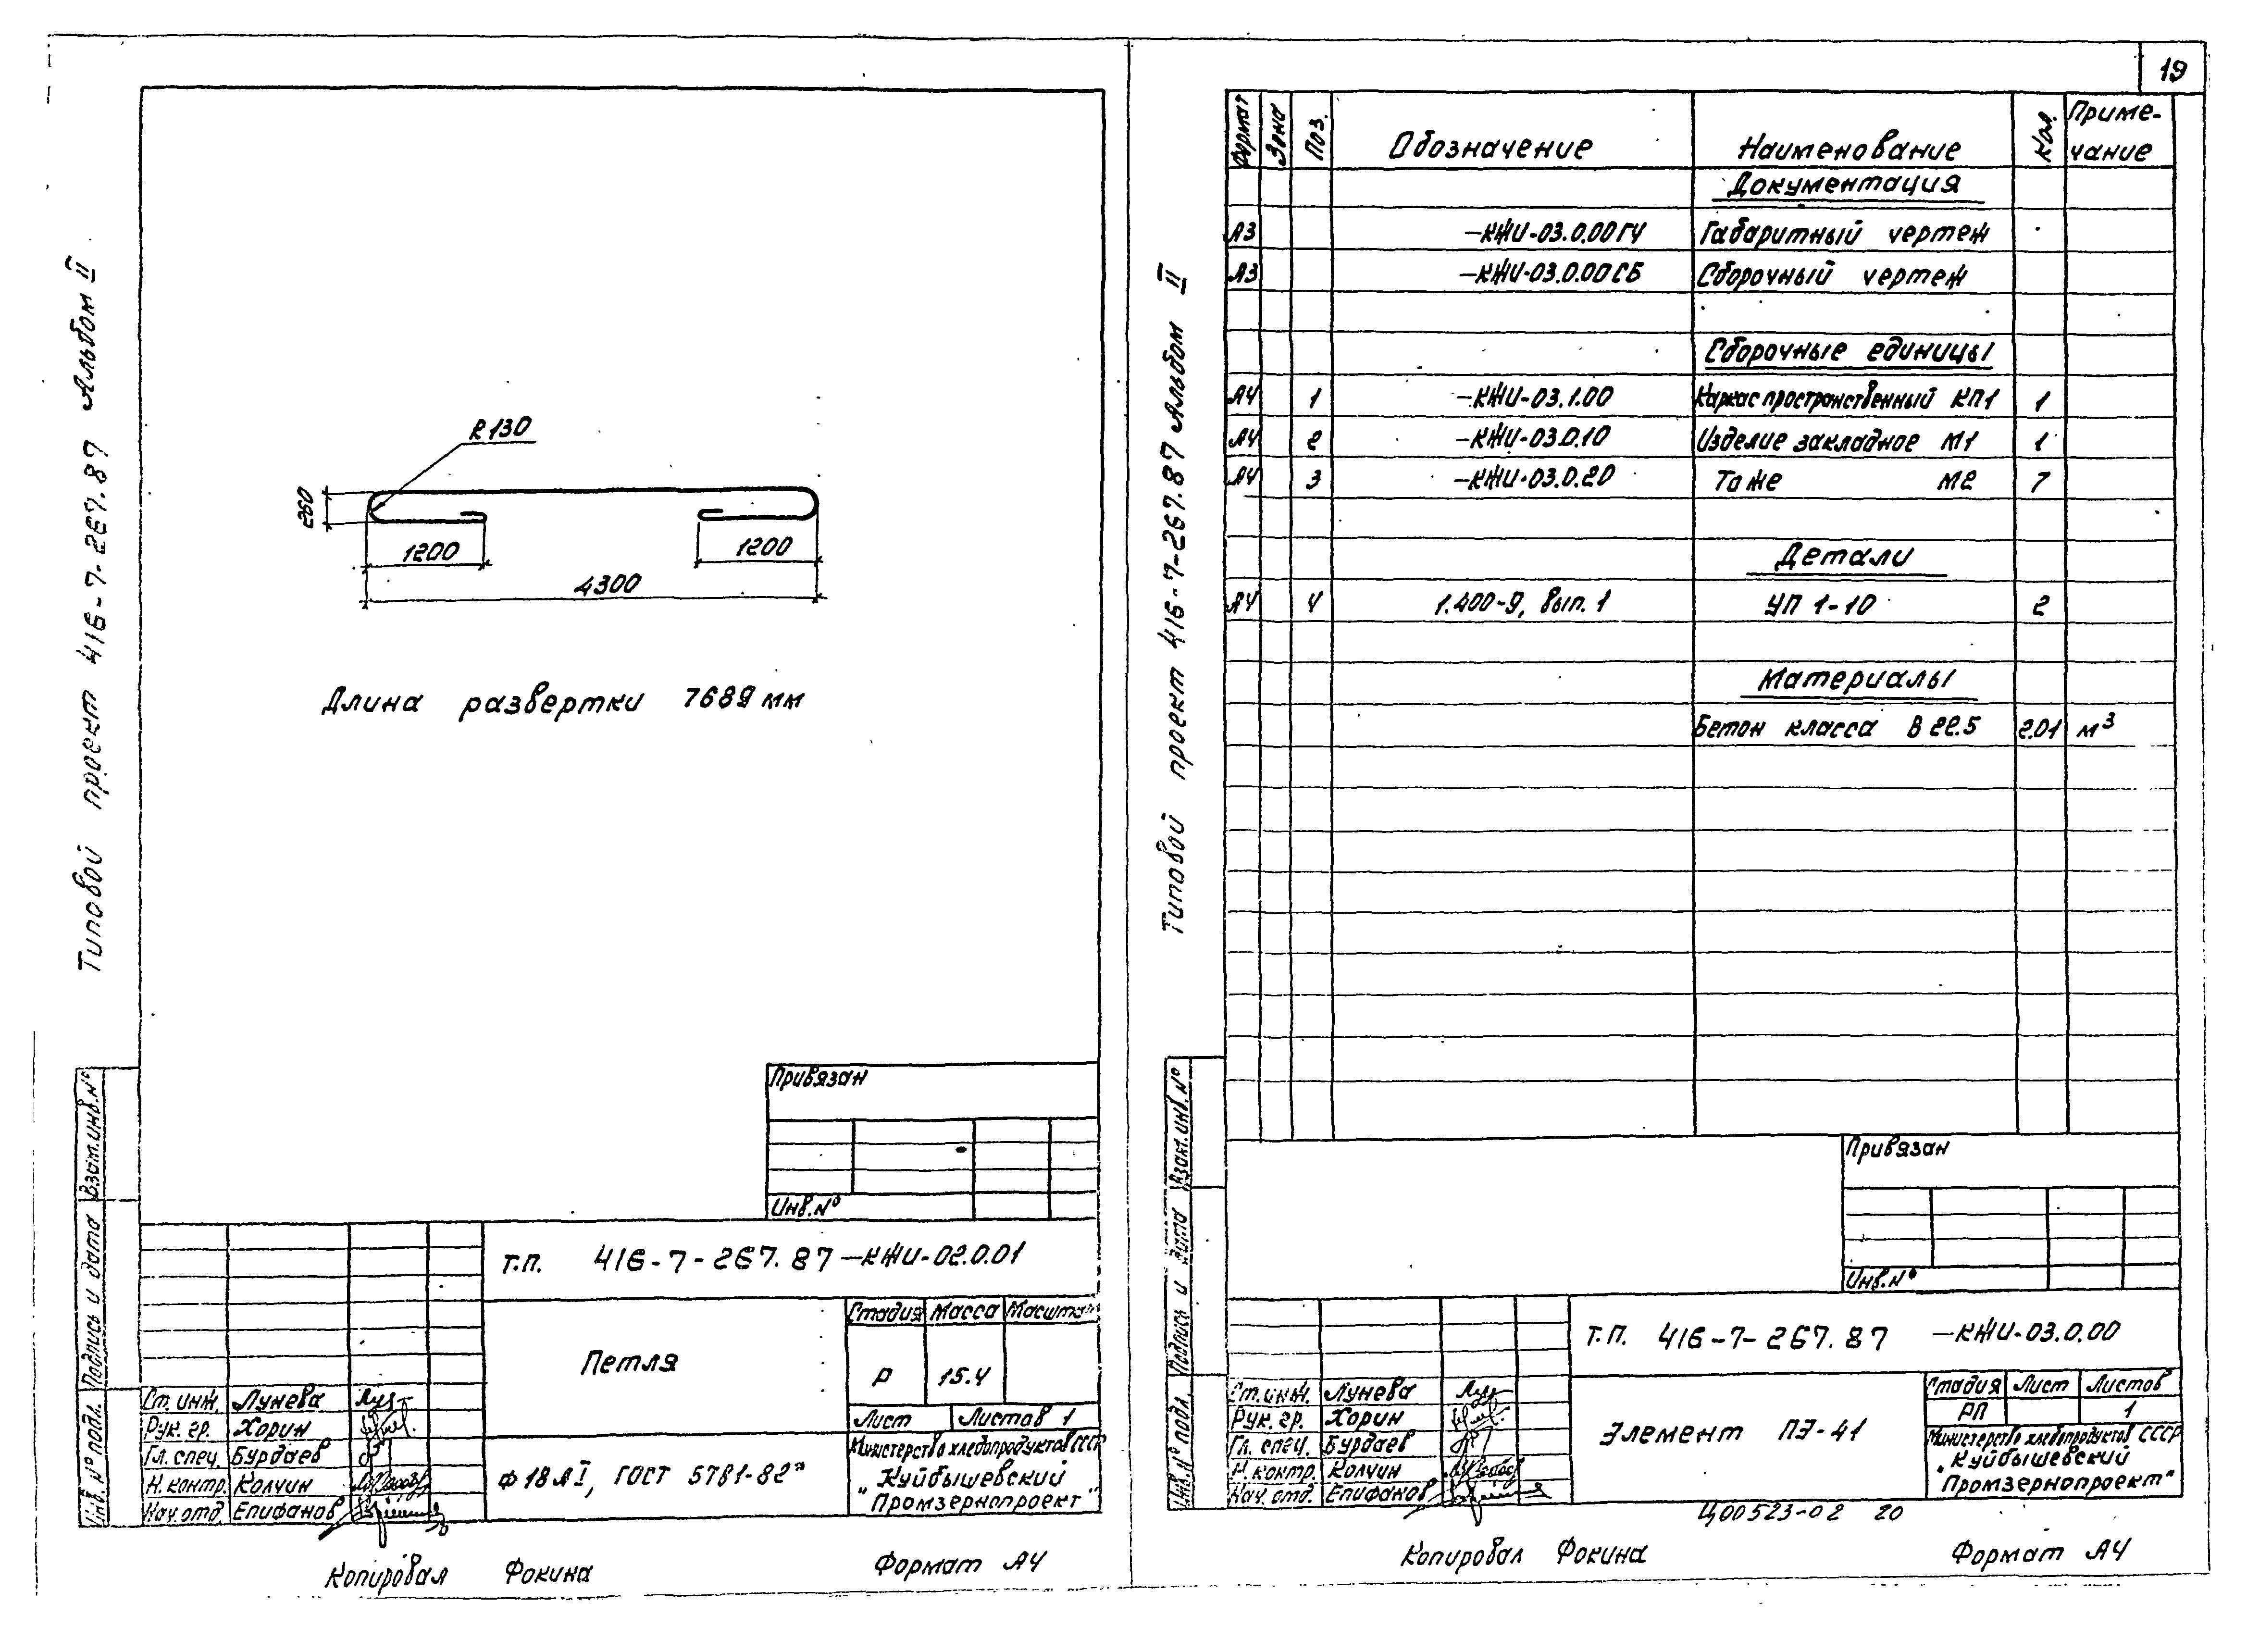 19
Типовой проект 416-7-267.87 Альбом II
R130
260
1200
1200
4300
Длина развертки 7689 мм
Привязан
Инв.№
Взам.инв.№
Подпись и дата
Инв.№ подл.
Т.П. 416-7-267.87 –КЖИ-02.0.01
Петля
Стадия Масса Масштаб
Р 15.4
Лист Листов 1
Ст. инж. Лунева
Рук. гр. Хорин
Гл. спец. Бурдаев
Н. контр. Колчин
Нач. отд. Епифанов
Ф 18 АI, ГОСТ 5781-82*
Министерство хлебопродуктов СССР
"Куйбышевский
Промзернопроект"
Копировал Фокина
Формат А4
Типовой проект 416-7-267.87 Альбом II
Формат Зона Поз. Обозначение Наименование Кол. Приме-
чание
Документация
А3 –КЖИ-03.0.00ГЧ Габаритный чертеж
А3 –КЖИ-03.0.00СБ Сборочный чертеж
Сборочные единицы
А4 1 –КЖИ-03.1.00 Каркас пространственный КП1 1
А4 2 –КЖИ-03.0.10 Изделие закладное М1 1
А4 3 –КЖИ-03.0.20 То же М2 7
Детали
А4 4 1.400-9, вып. 1 УП 1-10 2
Материалы
Бетон класса В 22.5 2.01 м³
Привязан
Инв.№
Взам.инв.№
Подпись и дата
Инв.№ подл.
Т.П. 416-7-267.87 –КЖИ-03.0.00
Элемент ПЭ-41
Стадия Лист Листов
РП 1
Ст. инж. Лунева
Рук. гр. Хорин
Гл. спец. Бурдаев
Н. контр. Колчин
Нач. отд. Епифанов
Министерство хлебопродуктов СССР
"Куйбышевский
Промзернопроект"
Ц00523-02 20
Копировал Фокина
Формат А4